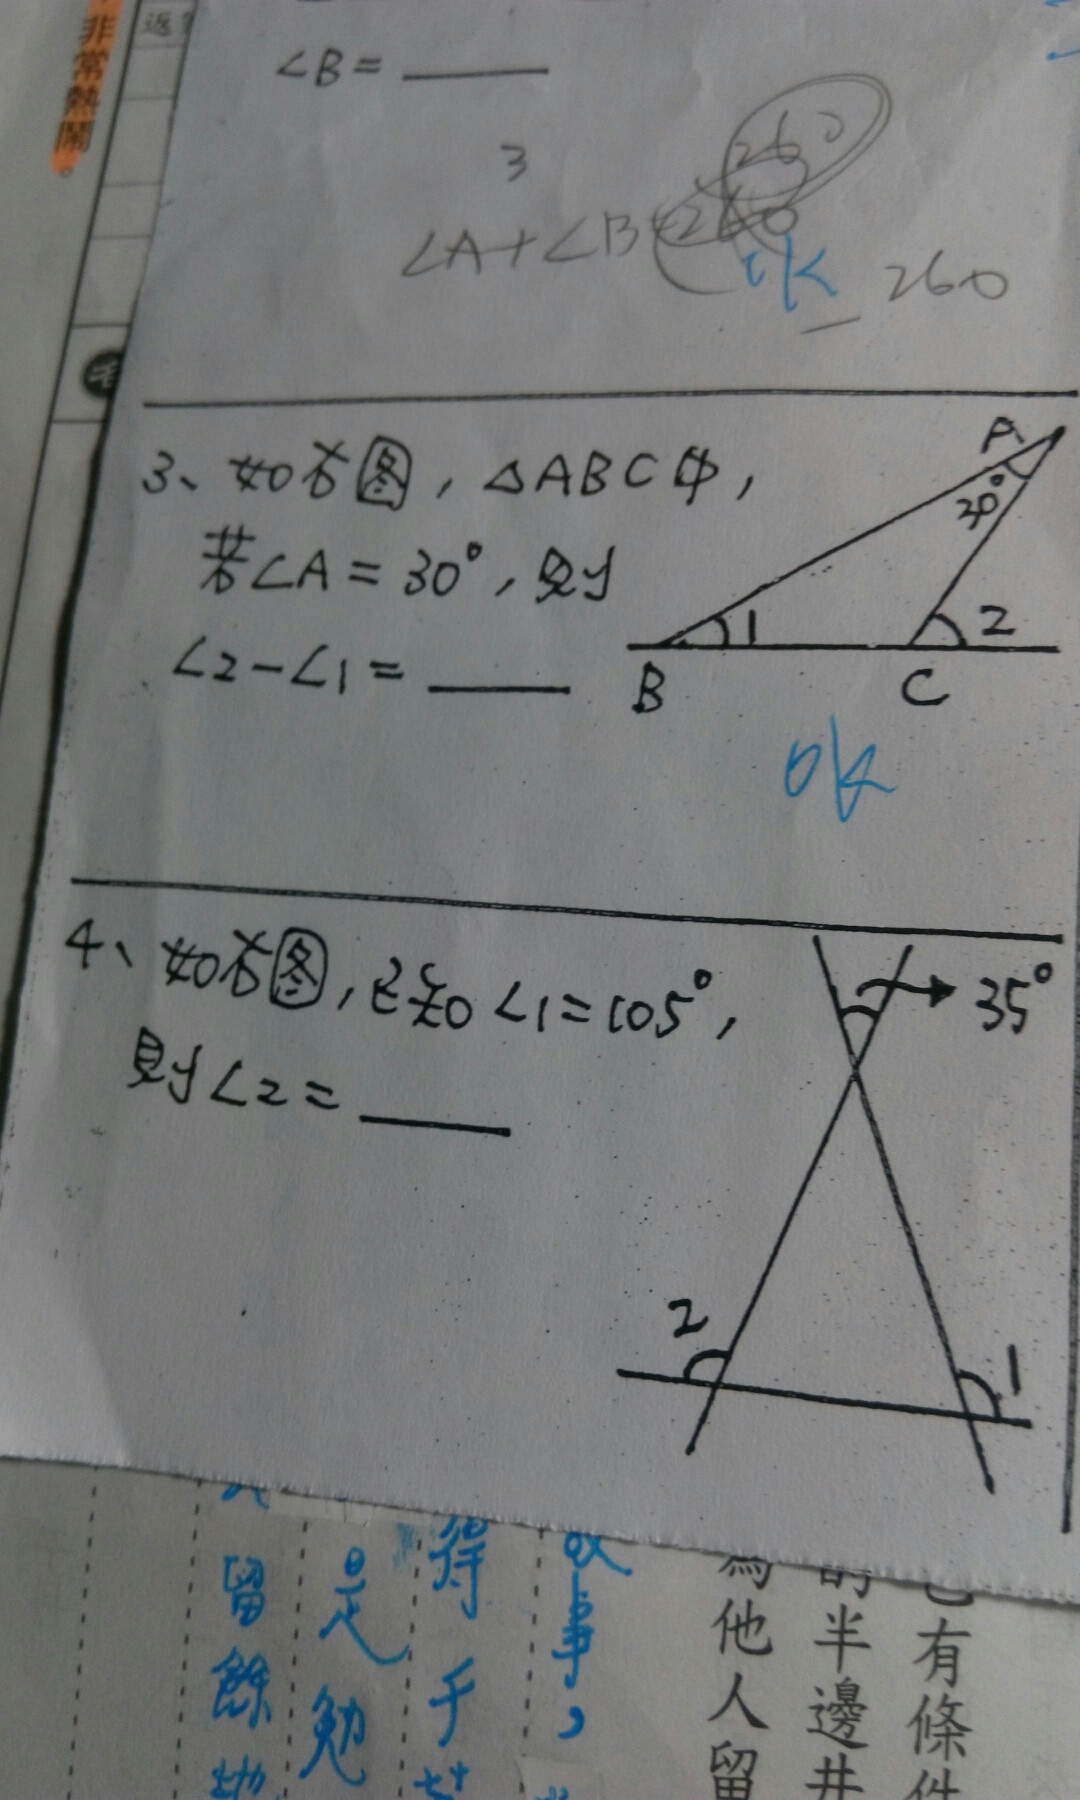 非常熱鬧。
返
∠B = ____
3
∠A+∠B=260
260
ok
260
毛
3、如右图,△ABC中,
若∠A=30°,則
∠2-∠1=____
A
1
2
B
C
ok
4、如右图,已知∠1=105°,
則∠2=____
35°
2
1
留餘地
是勉
得于
故事,
為他人留
的半邊井
也有條件